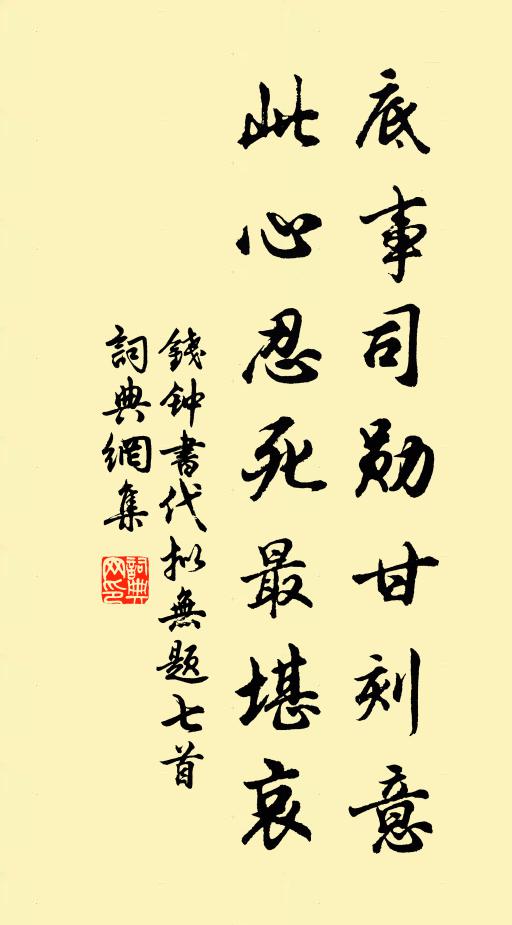 底事司勋甘刻意
此心忍死最堪哀
錢钟書代拟無题七首
詞典網集
詞典
网印